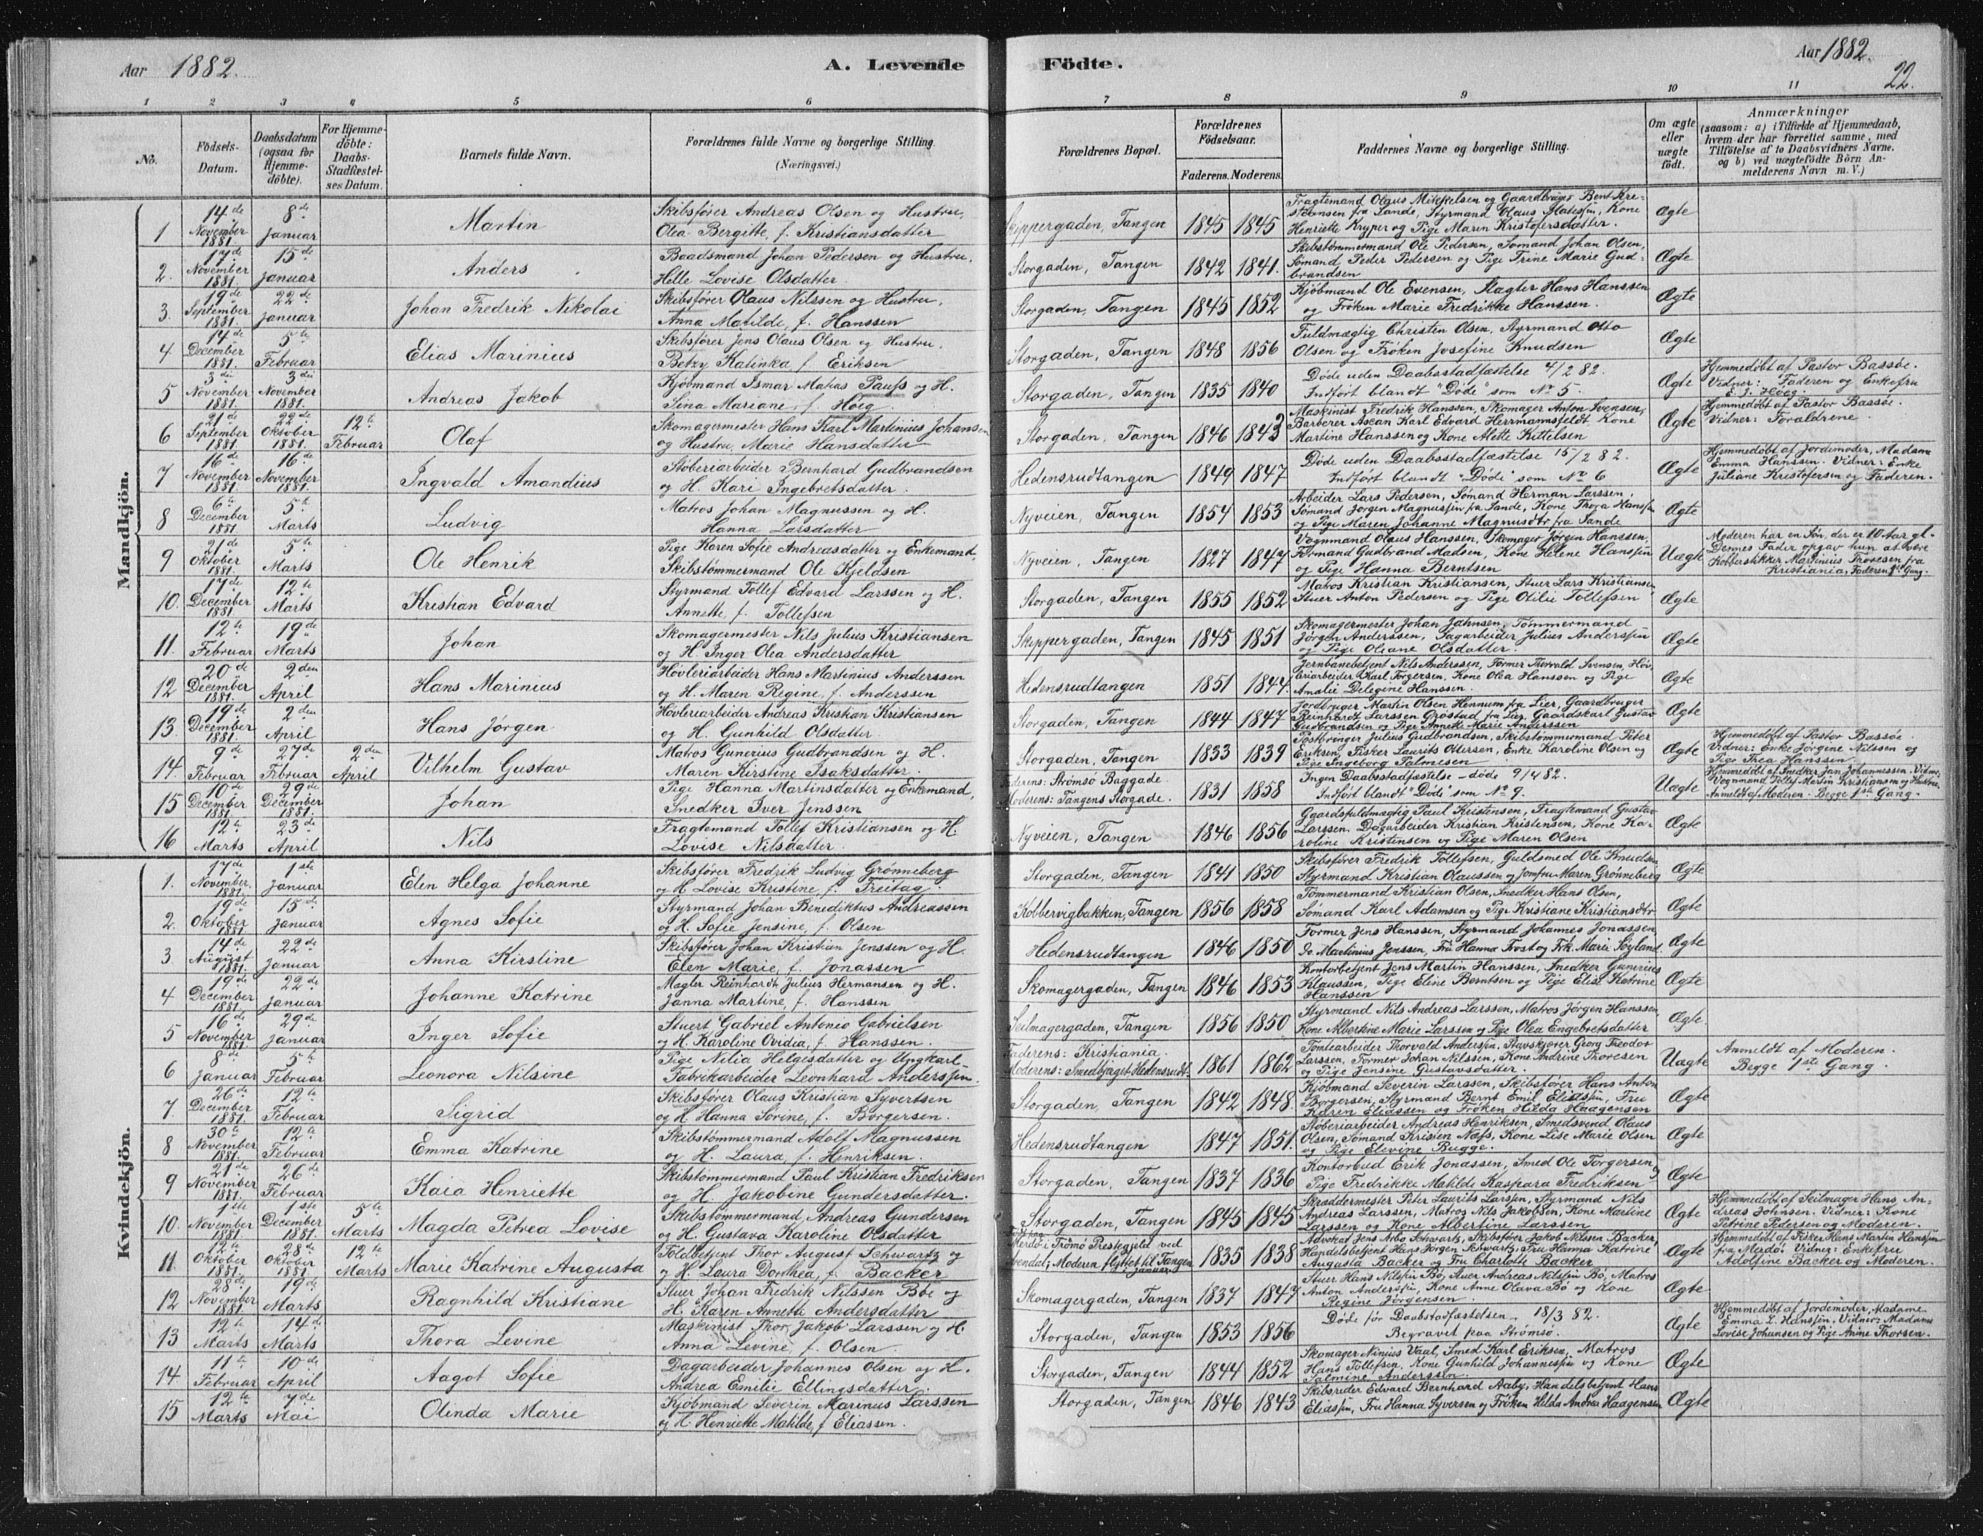 Aar 1882.
A. Levende Födte.
Aar 1882.
22.
1 2 3 4 5 6 7 8 9 10 11
No.
Födsels-Datum.
Daabsdatum (ogsaa for Hjemmedöbte).
For Hjemmedöbte: Daabs-Stadfæstelses Datum.
Barnets fulde Navn.
Forældrenes fulde Navne og borgerlige Stilling.
(Næringsvei.)
Forældrenes Bopæl.
Forældrenes Födselsaar.
Faderens. Moderens.
Faddernes Navne og borgerlige Stilling.
Om ægte eller uægte födt.
Anmærkninger
(saasom: a) i Tilfælde af Hjemmedaab, hvem der har forrettet samme, med Tilföielse af to Daabsvidners Navne. og b) ved uægtefödte Börn Anmelderens Navn m. V.)
Mandkjön.
1 14de November 1881. 8de Januar Martin
Skibsfører Andreas Olsen og Hustru,
Olea Bergitte, f. Kristiansdatter
Skippergaden, Tangen 1845 1845
Fragtemand Olaus Mikkelsen og Gaardbruger Bent Kristensen fra Sande, Styrmand Olaus Matesen, Kone
Henriette Kryper og Pige Maren Kristofersdatter.
Ægte
2. 17de November 1881. 15de Januar Anders
Baadsmand Johan Pedersen og Hustru,
Helle Lovise Olsdatter
Storgaden, Tangen 1842 1841.
Skibstømmermand Ole Pedersen, Sømand Johan Olsen,
Sømand Peder Pedersen og Pige Trine Marie Gudbrandsen
Ægte
3. 19de September 1881. 22de Januar Johan Fredrik Nikolai
Skibsfører Olaus Nilssen og Hustru,
Anna Matilde, f. Hanssen
Storgaden, Tangen 1845 1852
Kjøbmand Ole Evensen, Slagter Hans Hanssen
og Frøken Marie Fredrikke Hanssen.
Ægte
4 14de December 1881. 5te Februar Elias Marinius
Skibsfører Jens Olaus Olsen og Hustru,
Betzy Katinka f. Eriksen
Storgaden, Tangen 1848 1856
Fuldmægtig Christen Olsen, Styrmand Otto
Olsen og Frøken Josefine Knudsen
Ægte
5 3die November 1881. 3die November 1881. Andreas Jakob
Kjøbmand Ismar Matias Pauss og H.
Sina Mariane, f. Høeg
Storgaden, Tangen 1835 1840
Døde uden Daabsstadfæstelse 4/2 82.
Indført blandt "Døde" som No 5
Ægte
Hjemmedøbt af Pastor Bassøe.
Vidner: Faderen og Enkefru
E. J. Høeg
6 21de September 1881. 22de Oktober 1881. 12te Februar Olaf
Skomagermester Hans Karl Martinius Johansen
og Hustru, Marie Hansdatter
Storgaden, Tangen 1846 1843
Maskinest Fredrik Hanssen, Skomager Anton Svensen,
Barberer Ascan Karl Edvard Herrmannsfeldt, Kone
Martine Hanssen og Kone Alette Kittelsen
Ægte
Hjemmedøbt af Pastor Bassøe.
Vidner: Forældrene
7 16de November 1881. 16de November 1881. Ingvald Amandius
Støberiarbeider Bernhard Gudbrandsen
og H. Kari Ingebretsdatter.
Hedensrudtangen 1849 1847
Døde uden Daabsstadfæstelse 15/2 82.
Indført blandt "Døde" som No 6
Ægte
Hjemmedøbt af Jordemoder, Madama
Emma Hanssen. Vidner: Enke
Juliane Kristofersen og Faderen.
8 6te December 1881. 5te Marts Ludvig
Matros Johan Magnussen og H.
Hanna Larsdatter
Nyveien, Tangen 1854 1853
Arbeider Lars Pedersen, Sømand Herman Larssen,
Sømand Jørgen Magnussen fra Sande, Kone Thora Hanssen
og Pige Maren Johanne Magnusdtr fra Sande
Ægte
9 21de Oktober 1881. 5te Marts Ole Henrik
Pige Karen Sofie Andreasdatter og Enkemand
Skibstømmermand Ole Kjeldsen
Nyveien, Tangen 1827 1847
Vognmand Olaus Hanssen, Skomager Jørgen Hanssen,
Formand Gudbrand Madsen, Kone Helene Hanssen
og Pige Hanna Berntsen
Uægte
Moderen har en Søn, der er 10 Aar gl.
Dennes Fader opgav hun at være
Kobberstikker Martinius Thoresen fra
Kristiania, Faderen 1ste Gang.
10. 17de December 1881 12te Marts Kristian Edvard
Styrmand Tollef Edvard Larssen og H.
Annette, f. Tollefsen
Storgaden, Tangen 1855 1852
Matros Kristian Kristiansen, Stuer Lars Kristiansen
Stuer Anton Pedersen og Pige Otilie Tollefsen
Ægte
11. 12te Februar 19de Marts Johan
Skomagermester Nils Julius Kristiansen
og H. Inger Olea Andersdatter
Skippergaden, Tangen 1845 1851
Skomagermester Johan Jahnsen, Tømmermand
Jørgen Anderssen, Sagarbeider Julius Anderssen
og Pige Oleane Olsdatter.
Ægte
12 20de December 1881. 2den April Hans Marinius
Høvleriarbeider Hans Martinius Anderssen
og H. Maren Regine, f. Anderssen
Hedensrudtangen 1851 1847.
Jernbanebetjent Nils Anderssen, Former Thorvald Svensen, Høvleriarbeider Karl Jørgersen, Kone Olea Hanssen og Pige
Amalie Delegine Hanssen.
Ægte
13 19de December 1881. 2den April Hans Jørgen
Høvleriarbeider Andreas Kristian Kristiansen
og H. Gunhild Olsdatter
Storgaden, Tangen 1844 1847
Jordbruger Martin Olsen Hennum fra Lier, Gaardbruger
Reinhardt Larssen Grostad fra Lier, Gaardskarl Gustav
Gudbrandsen og Pige Anneke Marie Anderssen
Ægte
14. 9de Februar 27de Februar 2den April Vilhelm Gustav
Matros Gunerius Gudbrandsen og H.
Maren Kirstine Isaksdatter.
Storgaden, Tangen 1833 1839
Postbringer Julius Gudbrandsen, Skibstømmermand Peter
Eriksen, Fisker Laurits Ottersen, Enke Karoline Olsen og
Pige Ingeborg Palmesen
Ægte
Hjemmedøbt af Pastor Bassøe
Vidner: Enke Jørgine Nilssen og
Pige Thea Hanssen.
15 10de December 1881. 29de December 1881. Johan
Pige Hanna Martinsdatter og Enkemand,
Snedker Iver Jenssen
Faderens: Strømsø Baggade
Moderens: Tangens Storgade. 1831 1858
Ingen Daabsstadfæstelse - døde 9/4 82.
Indført blandt "Døde" som No 9.
Uægte
Hjemmedøbt af Snedker Jan Johannessen. Vidne,
Vognmand Tollef Martin Kristiansen og Hustru
Anmeldt af Moderen. Begge 1ste Gang.
16 12te Marts 23de April Nils
Fragtemand Tollef Kristiansen og H.
Lovise Nilsdatter.
Nyveien, Tangen 1846 1856
Gaardsfuldmægtig Paul Kristensen, Fragtemand Gustav
Larssen, Dagarbeider Kristian Kristensen, Kone Karoline Kristensen og Pige Maren Olsen
Ægte
Kvindekjön.
1. 17de November, 1881 1ste Januar Elen Helga Johanne
Skibsfører Fredrik Ludvig Grønneberg
og H. Lovise Kristine f. Freitag.
Storgaden, Tangen 1841 1850
Skibsfører Fredrik Tollefsen, Guldsmed Ole Knudsen
Styrmand Kristian Olaussen og Jomfru Maren Grønneberg
Ægte
2. 19de Oktober 1881 15de Januar Agnes Sofie
Styrmand Johan Benediktus Andreassen
og H. Sofie Jensine, f. Olsen
Kobbervigbakken, Tangen 1856 1858
Tømmermand Kristian Olsen, Snedker Hans Olsen,
Sømand Karl Adamsen og Pige Kristiane Kristiansdtr
Ægte
3 14de August 1881. 22de Januar Anna Kirstine
Skibsfører Johan Kristian Jenssen og H.
Elen Marie, f. Jonassen
Hedensrudtangen 1846 1850
Former Jens Hanssen, Styrmand Johannes Jonassen,
Do Martinius Jenssen, Fru Hanna Trost og Frk. Marie Søyland
Ægte
4 19de December 1881. 22de Januar Johanne Katrine
Mægler Reinhardt Julius Hermansen og H.
Janna Martine, f. Hanssen
Skomagergaden, Tangen 1846 1853
Kontorbetjent Jens Martin Hanssen, Snedker Gunerius
Klaussen, Pige Eline Berntsen og Pige Elise Katrine
Hanssen
Ægte
5 16de November 1881. 29de Januar Inger Sofie
Stuert Gabriel Antonio Gabrielsen
og H. Karoline Ovidia, f. Hanssen.
Seilmagergaden, Tangen 1856 1850
Styrmand Nils Andreas Larssen, Matros Jørgen Hanssen
Kone Albertine Marie Larssen og Pige Olea Engebretsdatter
Ægte.
6 8de Januar 5te Februar Leonora Nilsine
Pige Nilia Helgesdatter og Ungkarl,
Fabrikarbeider Leonhard Anderssen.
Faderens: Kristiania.
Moderens: Smedbjaget Hedensrudt. 1861 1862
Tomtearbeider Thorvald Anderssen, Stavskjører Georg Theodor
Larssen, Former Johan Nilssen, Kone Andrine Thoresen
og Pige Jensine Gustavsdatter.
Uægte
Anmeldt af Moderen.
Begge 1ste Gang.
7 26de December 1881. 12te Februar Sigrid
Skibsfører Olaus Kristian Syvertsen
og H. Hanna Sørine, f. Borgersen.
Storgaden, Tangen 1842 1848
Kjøbmand Severin Larssen, Skibsfører Hans Anton
Borgersen, Styrmand Bernt Emil Eliassen, Fru
Karen Eliassen og Frøken Hilda Haagensen
Ægte
8 30te November 1881. 12te Februar Emma Katrine
Skibstømmermand Adolf Magnussen
og H. Laura, f. Henriksen.
Hedensrudtangen 1847 1851.
Støberiarbeider Andreas Henriksen, Smedsvend Olaus
Olsen, Sømand Kristen Næss, Kone Lise Marie Olsen
og Pige Elevine Bugge.
Ægte
9 21de November 1881 26de Februar Kaia Henriette
Skibstømmermand Paul Kristian Fredriksen
og H. Jakobine Gundersdatter.
Storgaden, Tangen 1837 1836
Kontorbud Erik Jonassen, Smed Ole Torgersen og
Pige Fredrikke Matilde Kaspara Fredriksen
Ægte
10. 1ste November 1881 1ste December 1881 5te Marts Magda Petrea Lovise
Skibstømmermand, Andreas Gundersen
og H. Gustava Karoline Olsdatter
Storgaden, Tangen 1845 1845
Skræddermester Peter Laurits Larssen, Styrmand Nils
Andreas Larssen, Matros Nils Jakobsen, Kone Martine
Larssen og Kone Albertine Larssen
Ægte
Hjemmedøbt af Seilmager Hans, Andreas Johnsen. Vidner: Kone
Petrine Pedersen og Moderen.
11 12te Oktober 1881 28de Oktober 1881. 12te Marts Marie Katrine Augusta
Toldbetjent Thor August Schwartz og
H. Laura Dorthea, f. Backer
Merdø i Tromø Prestegjeld ved
Arendal; Moderen flyttet til Tangen
Januar. 1835 1838
Advokat Jens Arbo Schwartz, Skibsfører Jakob Nilssen Backer,
Handelsbetjent Hans Jørgen Schwartz, Fru Hanna Katrine
Augusta Backer og Fru Charlotte Backer
Ægte
Hjemmedøbt af Fisker Hans Martin Hanssen
fra Merdø. Vidner: Enkefru
Adolfine Backer og Moderen.
12 28de November 1881. 19de Marts Ragnhild Kristiane
Stuer Johan Fredrik Nilssen Bøe og
H. Karen Annette Andersdatter
Skomagergaden, Tangen 1837 1847
Stuer Hans Nilssen Bø, Stuer Andreas Nilssen Bø, Matros
Anton Anderssen, Kone Anne Olava Bø og Kone
Regine Jørgensen
Ægte
13 12te Marts 14de Marts Thora Levine
Maskinist Thor Jakob Larssen og H.
Anna Levine f. Olsen
Storgaden, Tangen 1853 1856
Døde før Daabstadfæstelsen 18/3 82.
Begravet paa Strømsø.
Ægte
Hjemmedøbt af Jordemoder, Madame
Emma L. Hanssen, Vidner: Madame
Lovise Johansen og Pige Anine Thorsen.
14 11te Februar 10de April Aagot Sofie
Dagarbeider Johannes Olsen og H.
Andrea Emilie Ellingsdatter.
Storgaden, Tangen 1844 1852
Skomager Ninius Vaul, Smed Karl Eriksen, Matros
Hans Tollefsen, Kone Gunhild Johannessen og Kone
Salmine Anderssen.
Ægte
15 12te Marts 7de Mai Olinda Marie
Kjøbmand Severin Marinus Larssen
og H. Henriette Matilde, f. Eliassen.
Storgaden, Tangen 1846 1843
Skibsreder Edvard Bernhard Aaby, Handelsbetjent Hans
Eliassen, Fru Hanna Syversen og Frøken Hilda Andrea Haagensen
Ægte